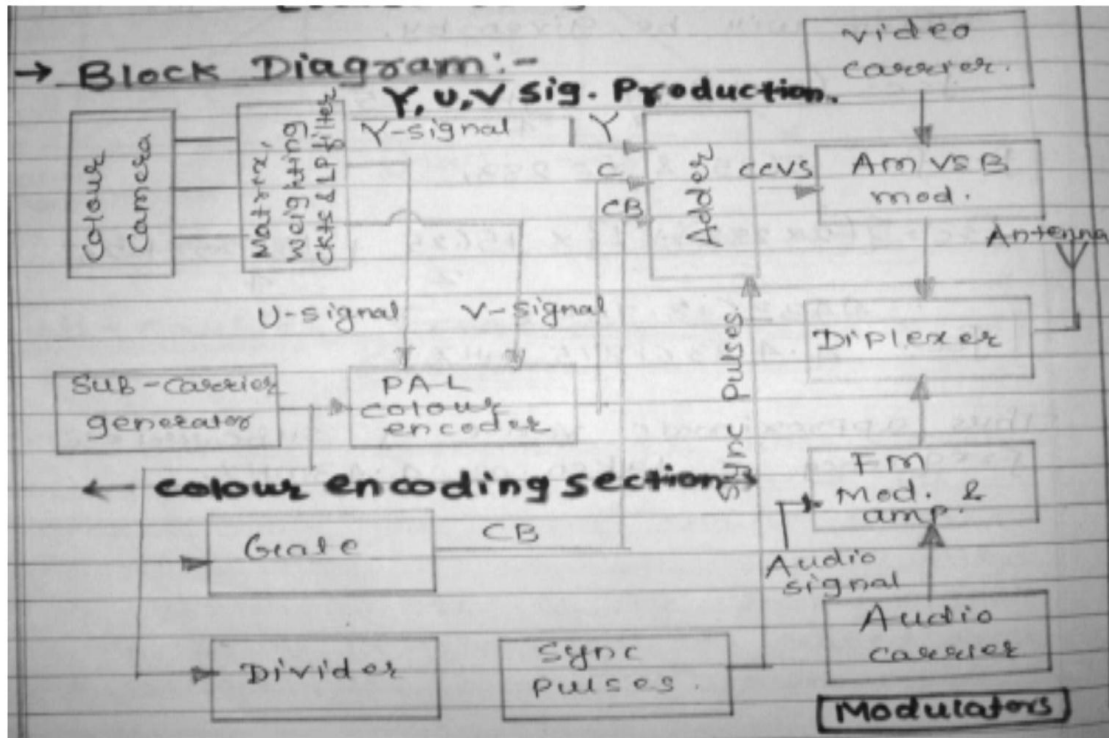 → Block Diagram:-
Y, U, V sig. Production.
video
carrier.
Colour
Camera
Matrix,
weighting
ckts & LP filter
Y-signal
Y
C
CB
Adder
CCVS
Am VSB
mod.
Antenna
U-signal
V-signal
Diplexer
Sub-carrier
generator
PAL
colour
encoder
Sync Pulses.
← colour encoding section →
FM
Mod. &
amp.
Gate
CB
Audio
signal
Audio
carrier
Divider
Sync
pulses.
Modulators